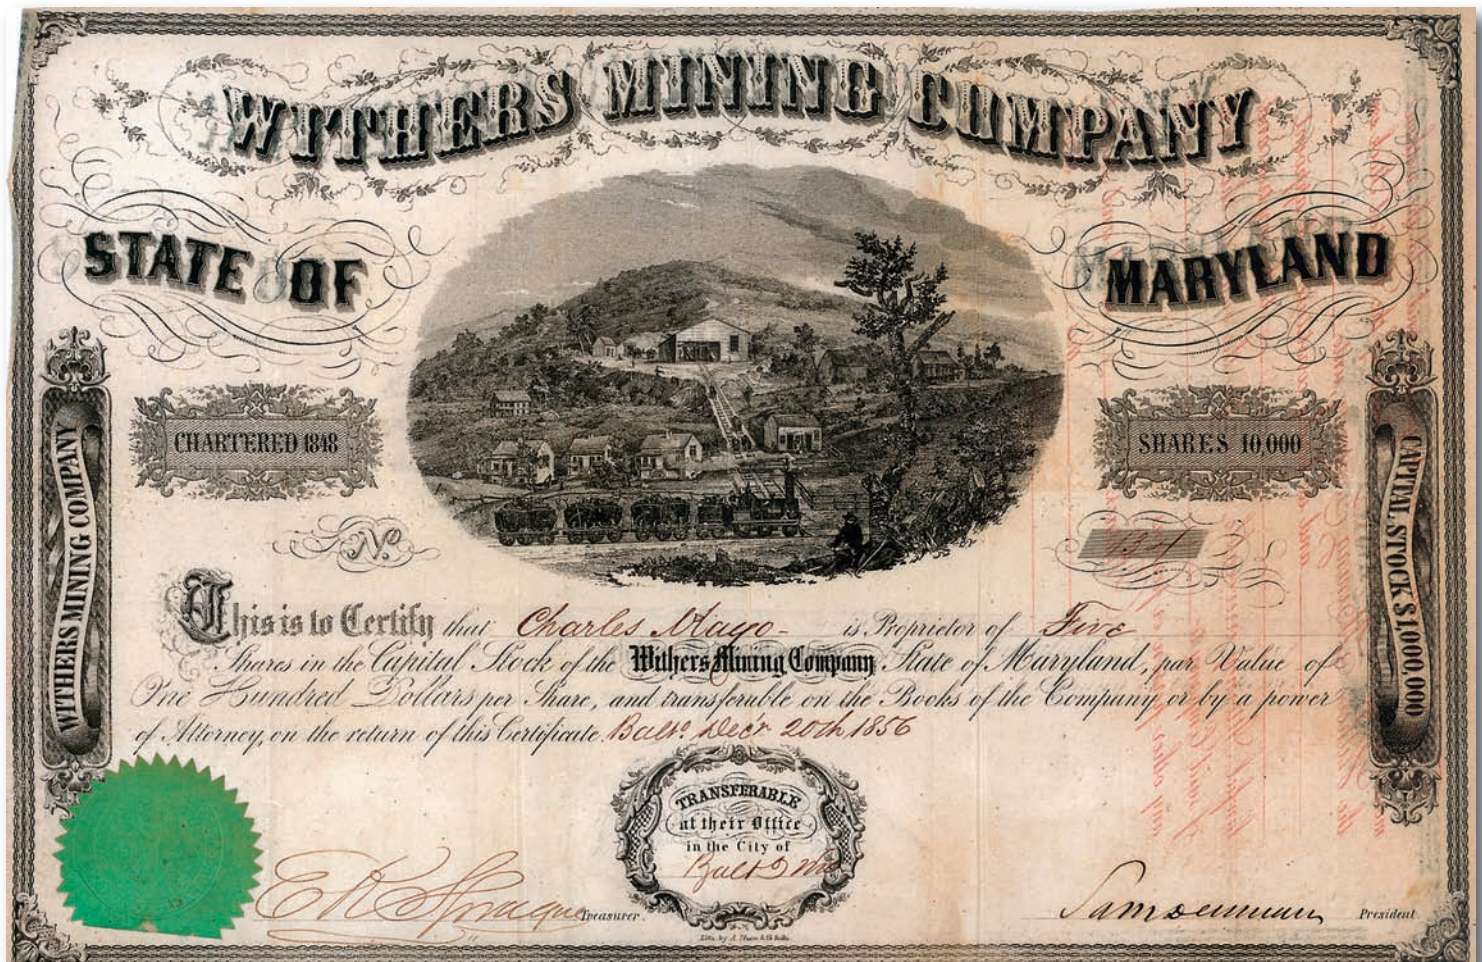 WITHERS MINING COMPANY
STATE OF MARYLAND
CHARTERED 1848
SHARES 10,000
WITHERS MINING COMPANY
CAPITAL STOCK $1,000,000
No
This is to Certify that Charles Mayo - is Proprietor of Five
Shares in the Capital Stock of the Withers Mining Company State of Maryland, par Value of
One Hundred Dollars per Share, and transferable on the Books of the Company or by a power
of Attorney, on the return of this Certificate. Balto Decr 20th 1856
TRANSFERABLE
at their Office
in the City of
Balto
Treasurer.
President